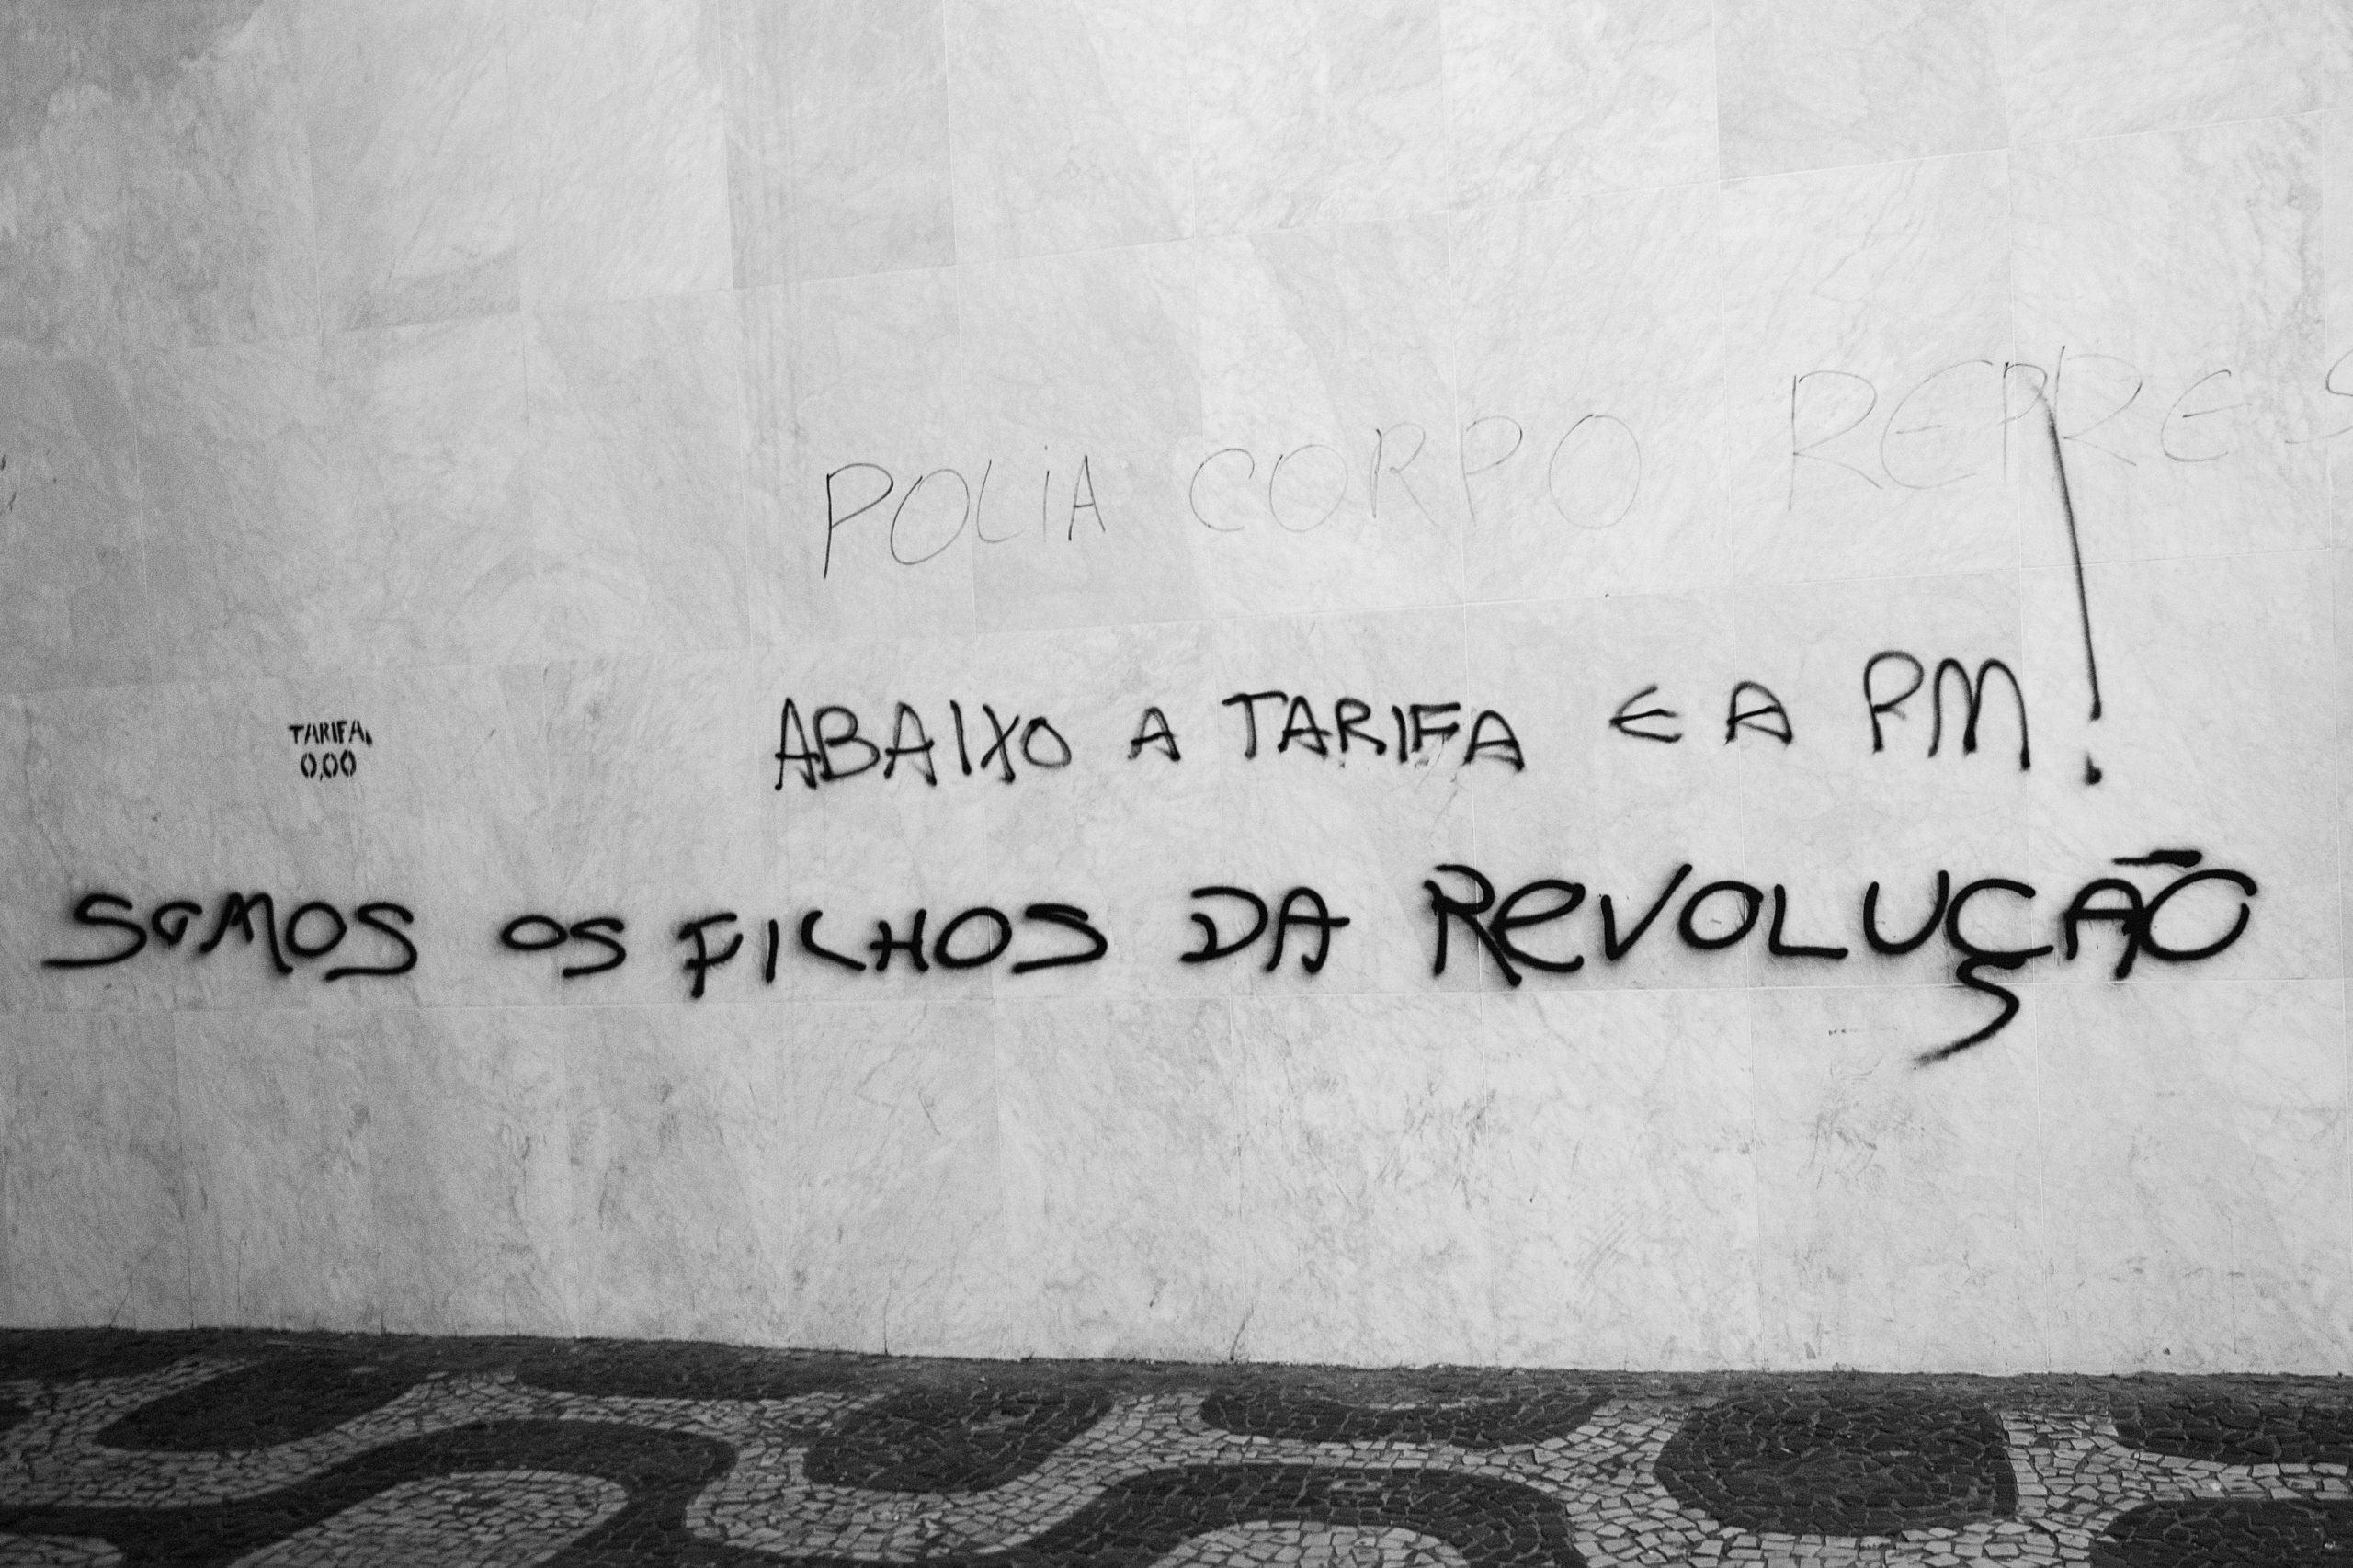 POLIA CORPO REPRES
TARIFA
0,00
ABAIXO A TARIFA E A PM!
SOMOS OS FILHOS DA REVOLUÇÃO